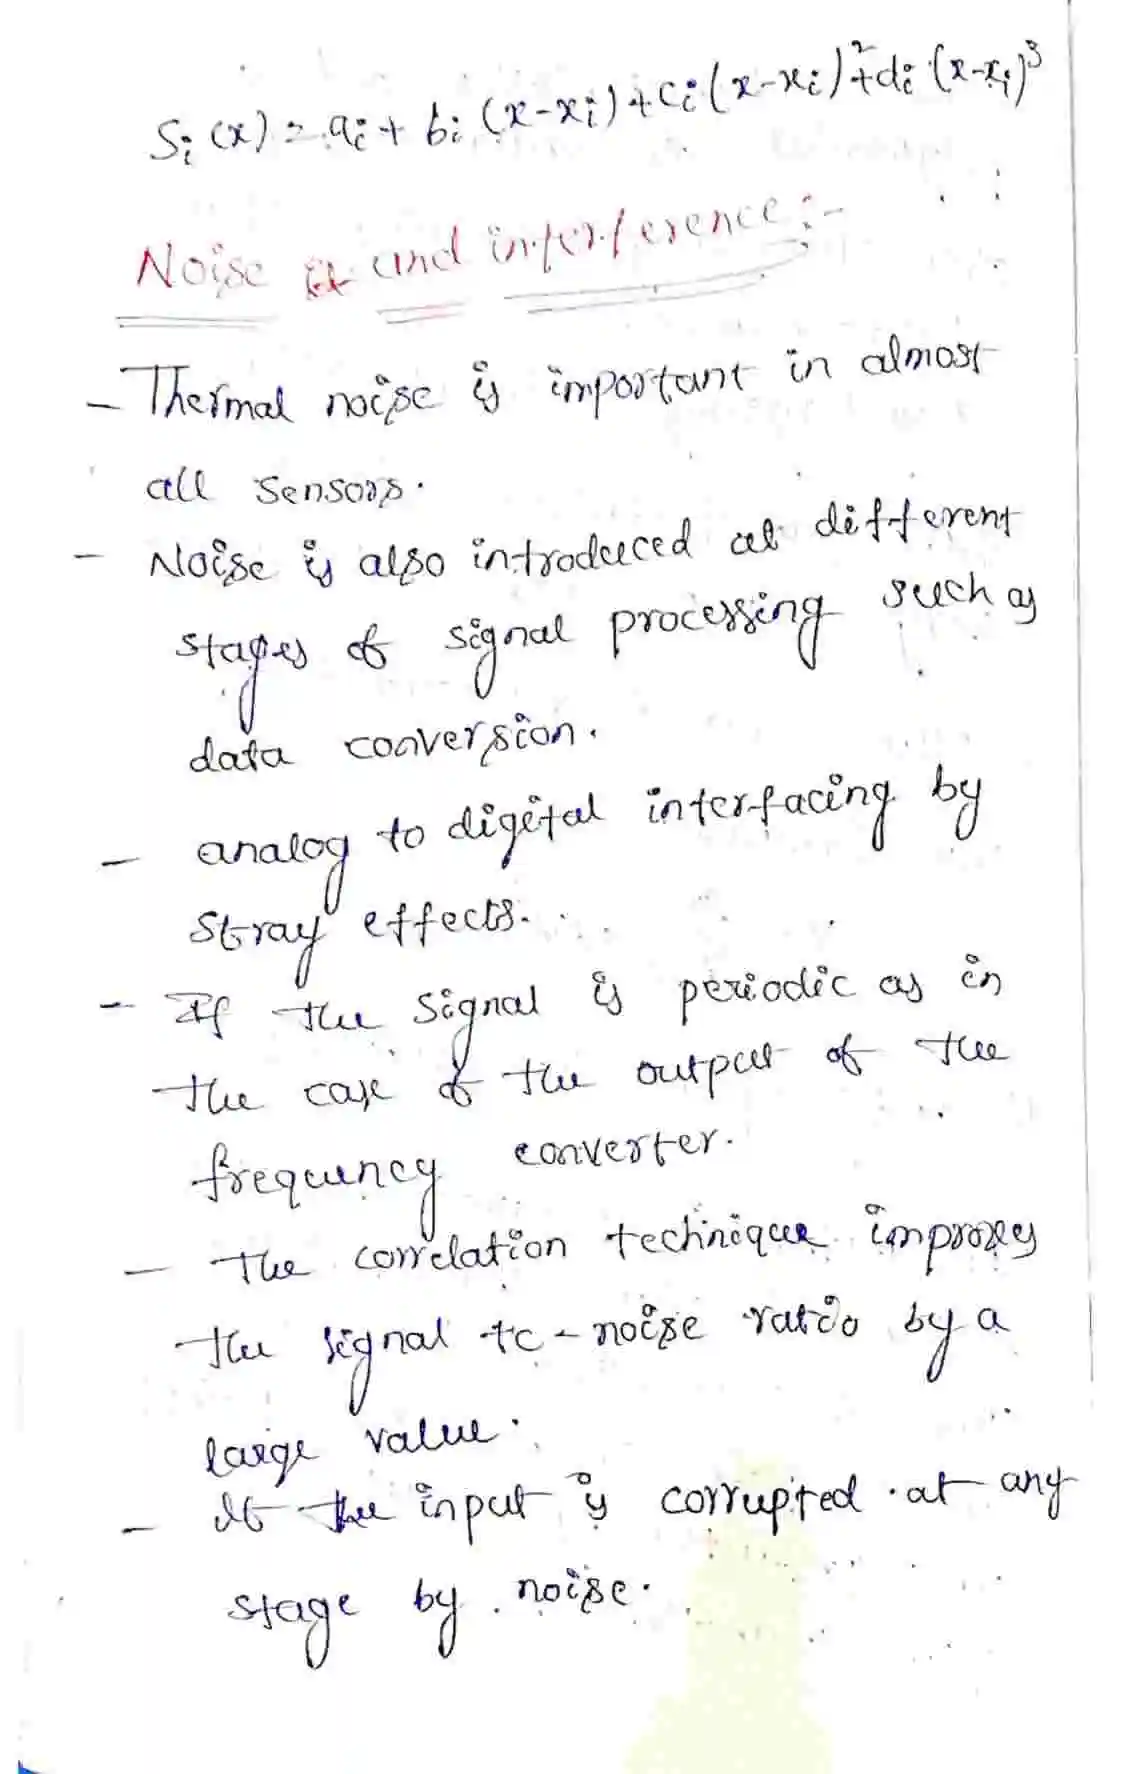 Si(x) = ai + bi (x-xi) + ci (x-xi)² + di (x-xi)³
Noise and interference :-
- Thermal noise is important in almost
all sensors.
- Noise is also introduced at different
stages of signal processing such as
data conversion.
- analog to digital interfacing by
stray effects.
- If the signal is periodic as in
the case of the output of the
frequency converter.
- The correlation technique improves
the signal to-noise ratio by a
large value.
- If the input is corrupted at any
stage by noise.